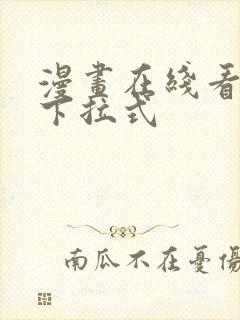 漫畫在綫看
下拉式
南瓜不在憂傷